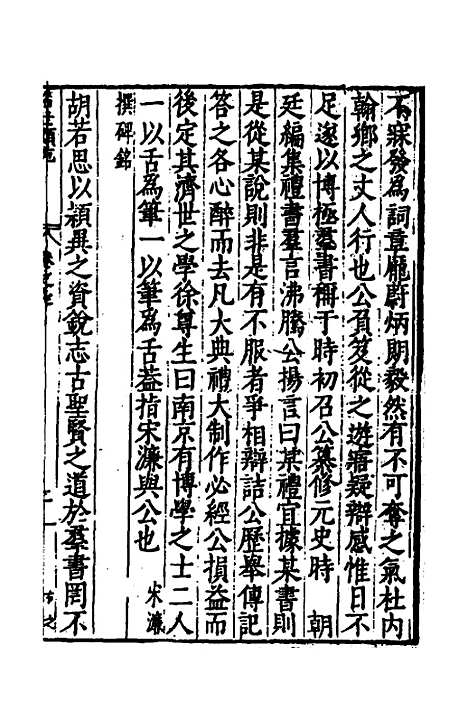 不寐發為詞章龐蔚炳朗毅然有不可奪之氣杜內
翰鄉之丈人行也公負笈從之遊寤疑辯惑惟日不
足遂以博極羣書稱于時初召公纂修元史時　朝
廷編集禮書羣言沸騰公揚言曰某禮宜據某書則
是從某說則非是有不服者爭相辯詰公歷舉傳記
答之各心醉而去凡大典禮大制作必經公損益而
後定其濟世之學徐尊生曰南京有博學之士二人
一以舌為筆一以筆為舌葢指宋濂與公也　宋濂
撰碑銘
胡若思以穎異之資銳志古聖賢之道於羣書罔不